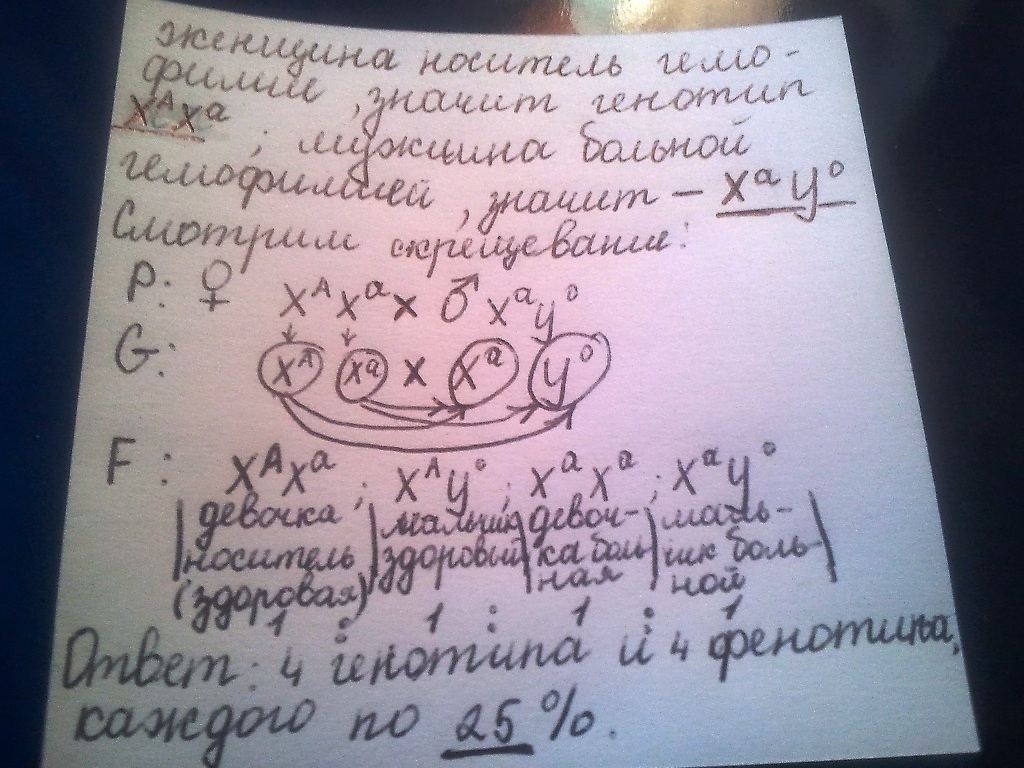 женщина носитель гемо-
филии, значит генотип
XᴬXᵃ; мужчина больной
гемофилией, значит – XᵃY⁰
Смотрим скрещевание:
P: ♀ XᴬXᵃ x ♂ XᵃY⁰
G: Xᴬ Xᵃ x Xᵃ Y⁰
F: XᴬXᵃ; XᴬY⁰; XᵃXᵃ; XᵃY⁰
девочка | мальчик | девоч- | маль-
носитель | здоровый | ка боль | чик боль-
(здоровая) | ная | ной
1 : 1 : 1 : 1
Ответ: 4 генотипа и 4 фенотипа,
каждого по 25%.